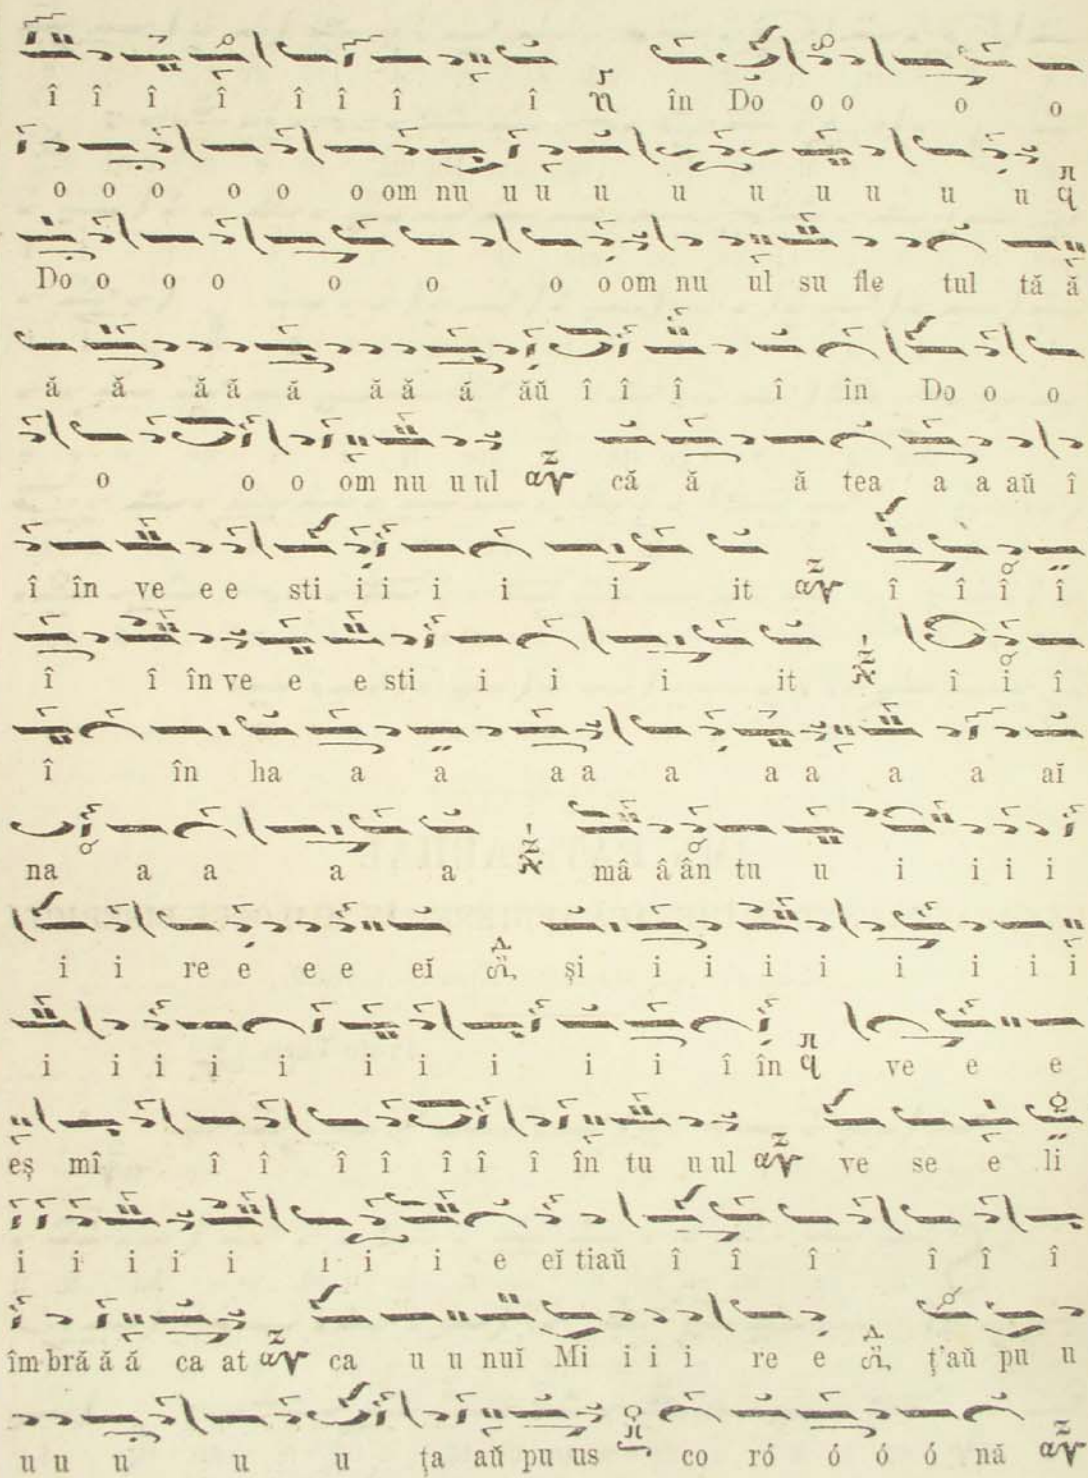 î î î î î î î î în Do o o o o
o o o o o o om nu u u u u u u u u u
Do o o o o o o o om nu ul su fle tul tă ă
ă ă ă ă ă ă ă ă ăŭ î î î î în Do o o
o o o om nu u ul că ă ă tea a a aŭ î
î în ve e e sti i i i i i it î î î î
î î în ve e e sti i i i it î i î
î în ha a a a a a a a a a aĭ
na a a a a mâ â ân tu u i i i i
i i re e e e eĭ și i i i i i i i i
i i i i i i i i i i î în ve e e
eș mî î î î î î î î în tu u ul ve se e li
i i i i i i i i e eĭ tiaŭ î î î î î î
îm bră ă ă ca at ca u u nuĭ Mi i i i re e ț'aŭ pu u
u u u u u ța aŭ pu us co ró ó ó ó nă